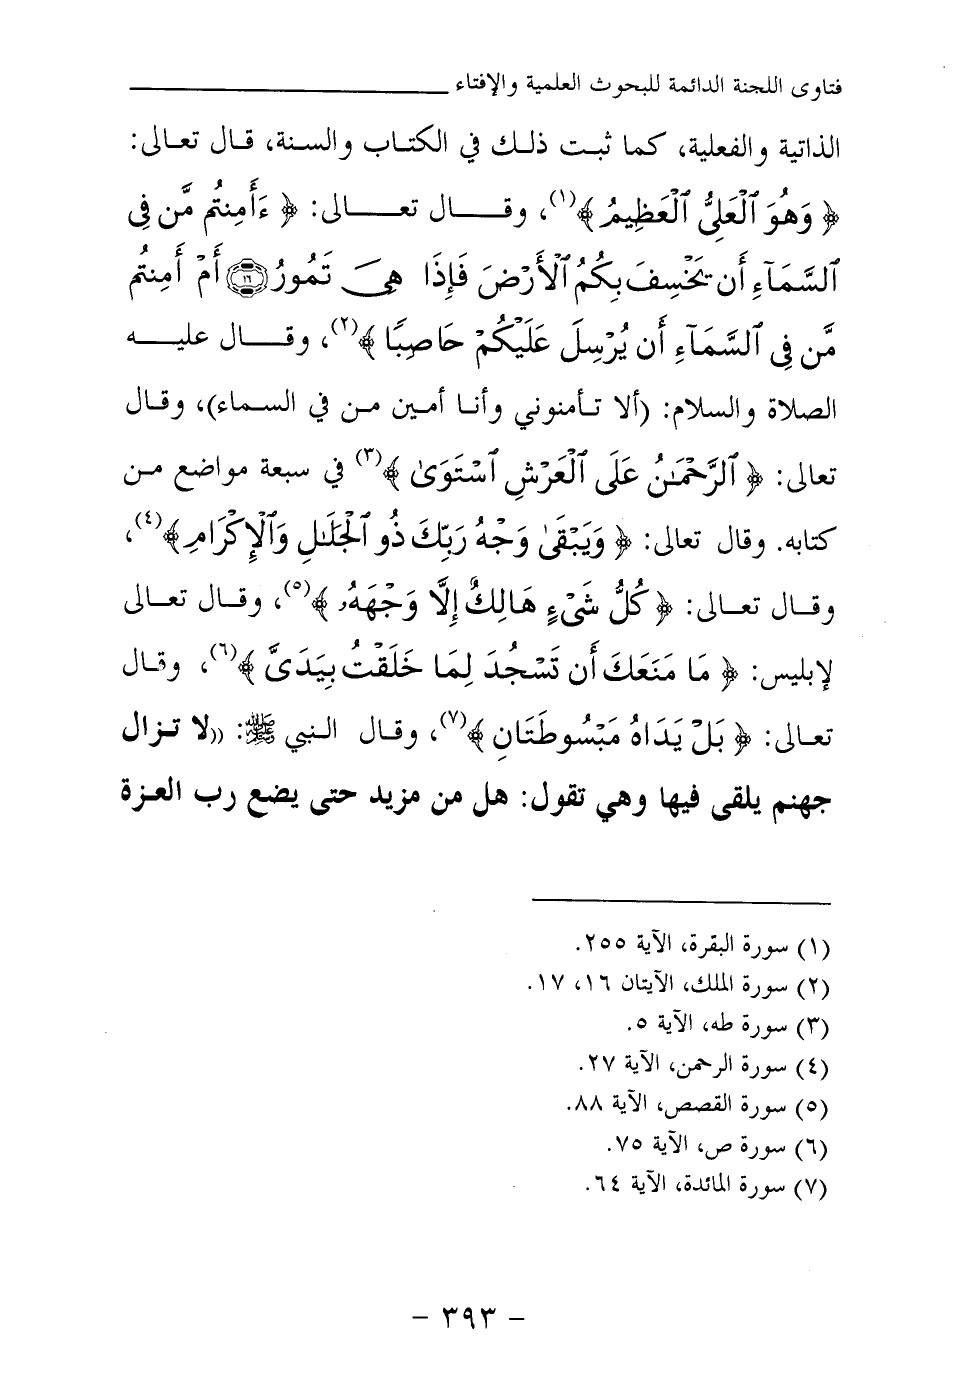 فتاوى اللجنة الدائمة للبحوث العلمية والإفتاء
الذاتية والفعلية، كما ثبت ذلك في الكتاب والسنة، قال تعالى:
﴿ وَهُوَ ٱلْعَلِىُّ ٱلْعَظِيمُ ﴾(١)، وقال تعالى: ﴿ ءَأَمِنتُم مَّن فِى
ٱلسَّمَآءِ أَن يَخْسِفَ بِكُمُ ٱلْأَرْضَ فَإِذَا هِىَ تَمُورُ ۝١٦ أَمْ أَمِنتُم
مَّن فِى ٱلسَّمَآءِ أَن يُرْسِلَ عَلَيْكُمْ حَاصِبًا ﴾(٢)، وقال عليه
الصلاة والسلام: (ألا تأمنوني وأنا أمين من في السماء)، وقال
تعالى: ﴿ ٱلرَّحْمَـٰنُ عَلَى ٱلْعَرْشِ ٱسْتَوَىٰ ﴾(٣) في سبعة مواضع من
كتابه. وقال تعالى: ﴿ وَيَبْقَىٰ وَجْهُ رَبِّكَ ذُو ٱلْجَلَـٰلِ وَٱلْإِكْرَامِ ﴾(٤)،
وقال تعالى: ﴿ كُلُّ شَىْءٍ هَالِكٌ إِلَّا وَجْهَهُۥ ﴾(٥)، وقال تعالى
لإبليس: ﴿ مَا مَنَعَكَ أَن تَسْجُدَ لِمَا خَلَقْتُ بِيَدَىَّ ﴾(٦)، وقال
تعالى: ﴿ بَلْ يَدَاهُ مَبْسُوطَتَانِ ﴾(٧)، وقال النبي ﷺ: «لا تزال
جهنم يلقى فيها وهي تقول: هل من مزيد حتى يضع رب العزة
(١) سورة البقرة، الآية ٢٥٥.
(٢) سورة الملك، الآيتان ١٦، ١٧.
(٣) سورة طه، الآية ٥.
(٤) سورة الرحمن، الآية ٢٧.
(٥) سورة القصص، الآية ٨٨.
(٦) سورة ص، الآية ٧٥.
(٧) سورة المائدة، الآية ٦٤.
- ٣٩٣ -